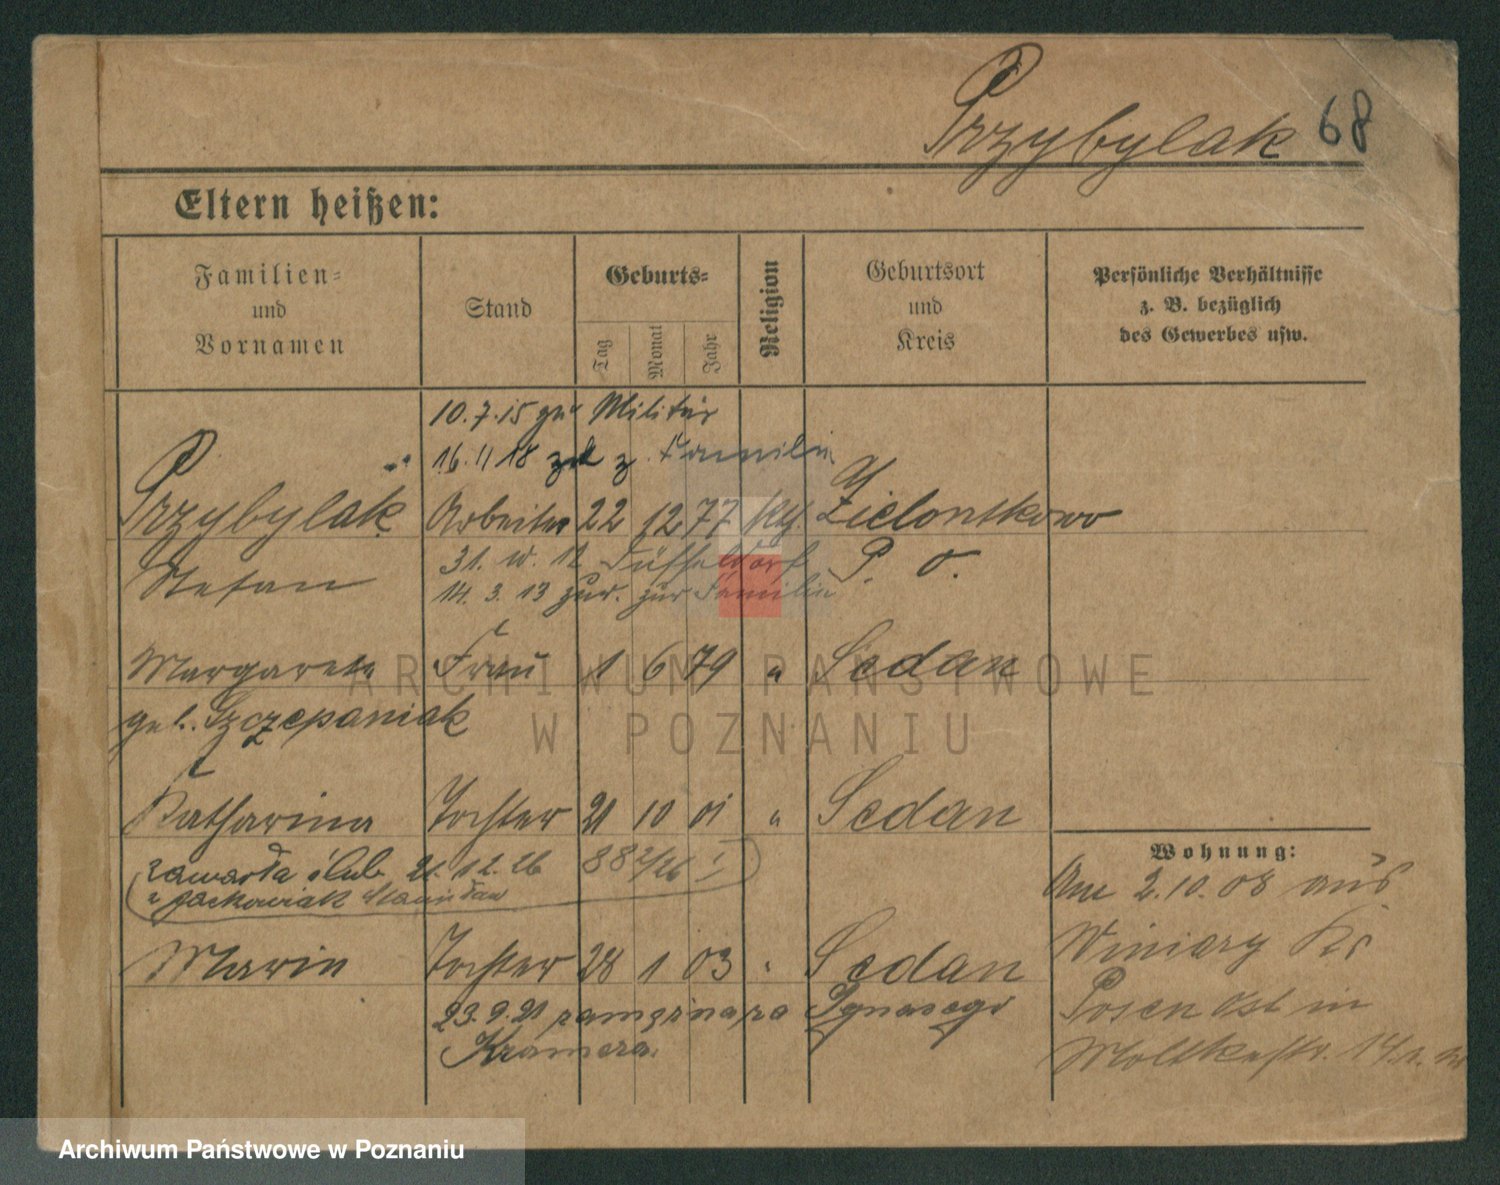 Przybylak 68
Eltern heißen:
Familien-
und
Vornamen
Stand
Geburts-
Tag
Monat
Jahr
Religion
Geburtsort
und
Kreis
Persönliche Verhältnisse
z. B. bezüglich
des Gewerbes usw.
10.7.15 zu Militär
16.11.18 zck z. Familie
Przybylak Arbeiter 22 12 77 kth. Zielontkowo
Stefan P. O.
31. 12 Düsseldorf
14. 3. 13 zur. zur Familie
Margareta Frau 1 6 79 " Sedan
geb. Szczepaniak
Katharina Tochter 21 10 01 " Sedan
zawarła ślub 21.12.26 882/26 I
z Jackowiak Stanisław
Marie Tochter 28 1 03 " Sedan
23.9.21 zamężna za Ignacego
Kramera
Wohnung:
Am 2.10.08 aus
Winiary Kr
Posen Ost in
Moltkestr. 14.
ARCHIWUM PAŃSTWOWE
W POZNANIU
Archiwum Państwowe w Poznaniu